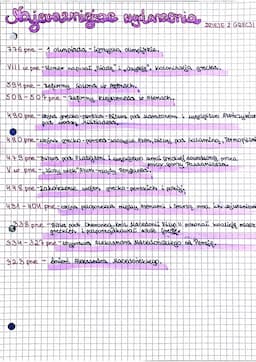 Najważniejsze wydarzenia
776 pne - 1 olimpiada - igrzyska olimpijskie.
VIII w pne - Homer napisał „Iliadę" i „Odyseję", kolonizacja grecka.
594 pne - Reformy Solona w Atenach.
508 - 507 pne - Reformy Klejstenesa w Atenach.
490 pne - wojna grecko-perska - Bitwa pod Maratonem i zwycięstwo Ateńczyków
pod wodzą Miltiadesa.
480 pne - wojna grecko-perska - bitwa pod Salaminą, Termopilami
479 pne - Bitwa pod Platejami i zwycięstwo armii greckiej
przez Spartę Pauzaniasza.
V w pne - Złoty wiek Aten - rządy Peryklesa.
448 pne - Zakończenie wojen grecko-perskich i pokój.
431 - 404 pne - wojna peloponeska między Atenami i Spartą oraz ich sojusznikami
338 pne - Bitwa pod Cheroneą, król Macedonii Filip II pokonał koalicję miast
greckich i podporządkował sobie Grecję.
334 - 327 pne - wyprawa Aleksandra Macedońskiego na Persję.
323 pne - śmierć Aleksandra Macedońskiego.